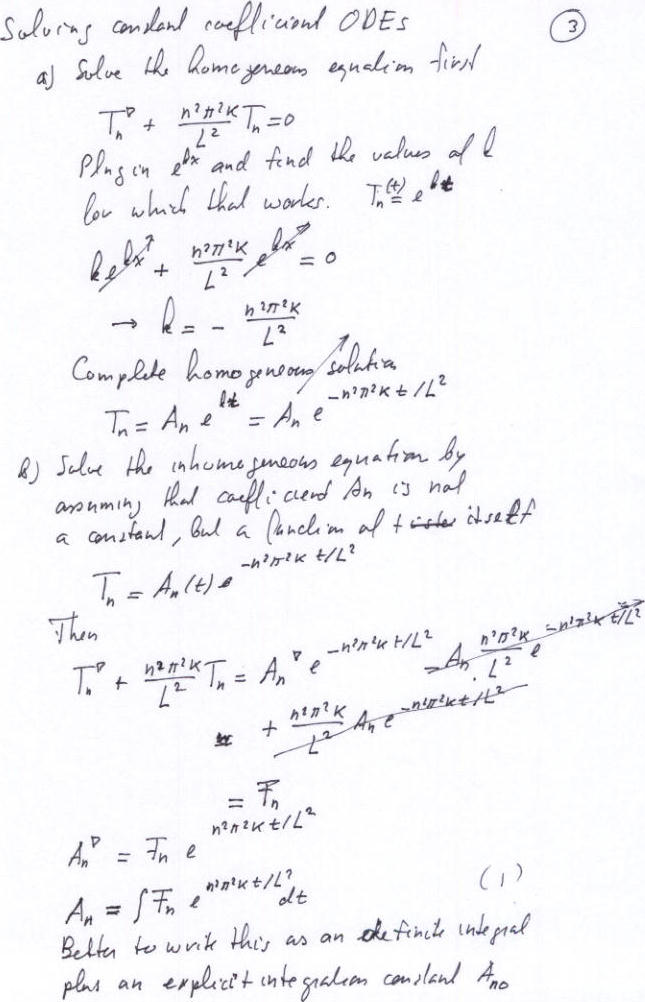 Solving constant coefficient ODEs ③
a) Solve the homogeneous equation first
T_n' + n²π²κ/L² T_n = 0
Plug in e^{kx} and find the values of k
for which that works. T_n(t) = e^{kt}
k e^{kx} + n²π²κ/L² e^{kx} = 0
→ k = - n²π²κ/L²
Complete homogeneous solution
T_n = A_n e^{kt} = A_n e^{-n²π²κt/L²}
b) Solve the inhomogeneous equation by
assuming that coefficient A_n is not
a constant, but a function of t itself
T_n = A_n(t) e^{-n²π²κt/L²}
Then
T_n' + n²π²κ/L² T_n = A_n' e^{-n²π²κt/L²} - A_n n²π²κ/L² e^{-n²π²κt/L²}
+ n²π²κ/L² A_n e^{-n²π²κt/L²}
= F_n
A_n' = F_n e^{n²π²κt/L²}
A_n = ∫ F_n e^{n²π²κt/L²} dt (1)
Better to write this as an definite integral
plus an explicit integration constant A_{n0}